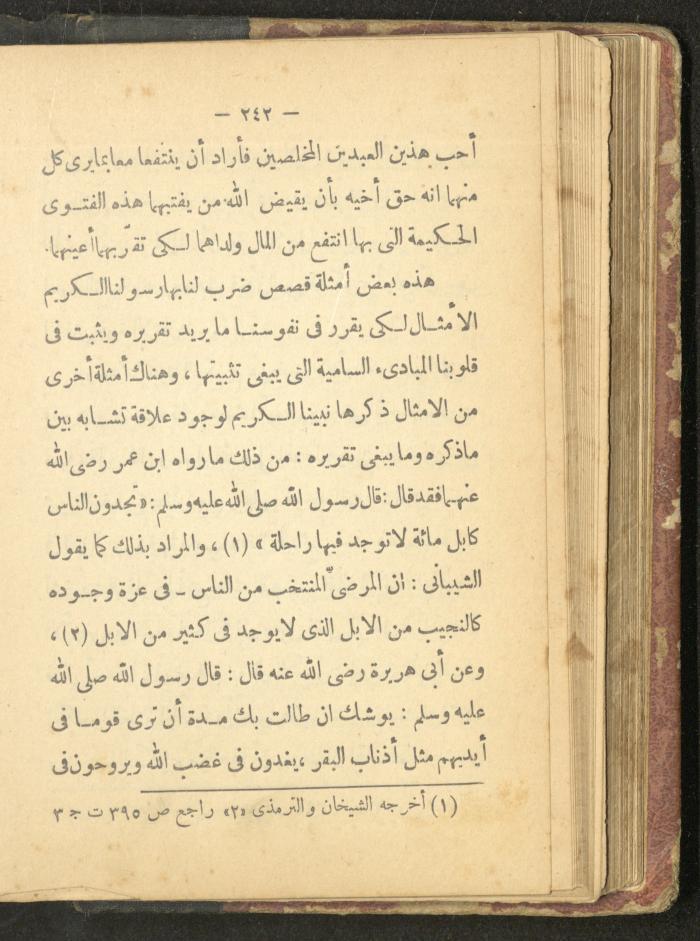 — ٢٤٢ —
أحب هذين العبدين المخلصين فأراد أن ينتفعا معا بما يرى كل
منهما انه حق أخيه بأن يقيض الله من يفتيهما هذه الفتوى
الحكيمة التى بها انتفع من المال ولداهما لكى تقرّ بهما أعينهما.
هذه بعض أمثلة قصص ضرب لنا بها رسولنا الكريم
الأمثال لكى يقرر فى نفوسنا ما يريد تقريره ويثبت فى
قلوبنا المبادىء السامية التى يبغى تثبيتها ، وهناك أمثلة أخرى
من الامثال ذكرها نبينا الكريم لوجود علاقة تشابه بين
ماذكره وما يبغى تقريره : من ذلك مارواه ابن عمر رضى الله
عنهما فقد قال : قال رسول الله صلى الله عليه وسلم : « تجدون الناس
كابل مائة لاتوجد فيها راحلة » (١) ، والمراد بذلك كما يقول
الشيبانى : ان المرضىّ المنتخب من الناس - فى عزة وجوده
كالنجيب من الابل الذى لايوجد فى كثير من الابل (٢) ،
وعن أبى هريرة رضى الله عنه قال : قال رسول الله صلى الله
عليه وسلم : يوشك ان طالت بك مدة أن ترى قوما فى
أيديهم مثل أذناب البقر ، يغدون فى غضب الله ويروحون فى
(١) أخرجه الشيخان والترمذى «٢» راجع ص ٣٩٥ ت ج ٣